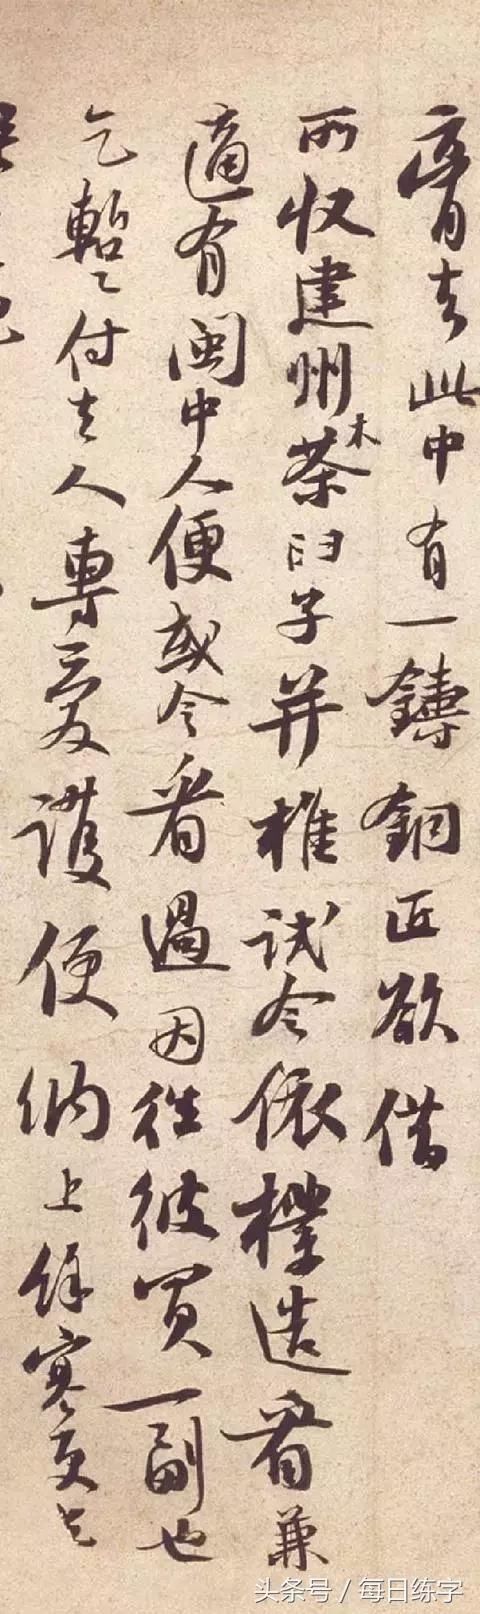 膏去此中有一鑄銅匠欲借
所收建州木茶臼子并椎試令依樣造看兼
適有閩中人便或令看過因往彼買一副也
乞暫付去人專愛護便納上餘寒更乞
头条号 / 每日练字